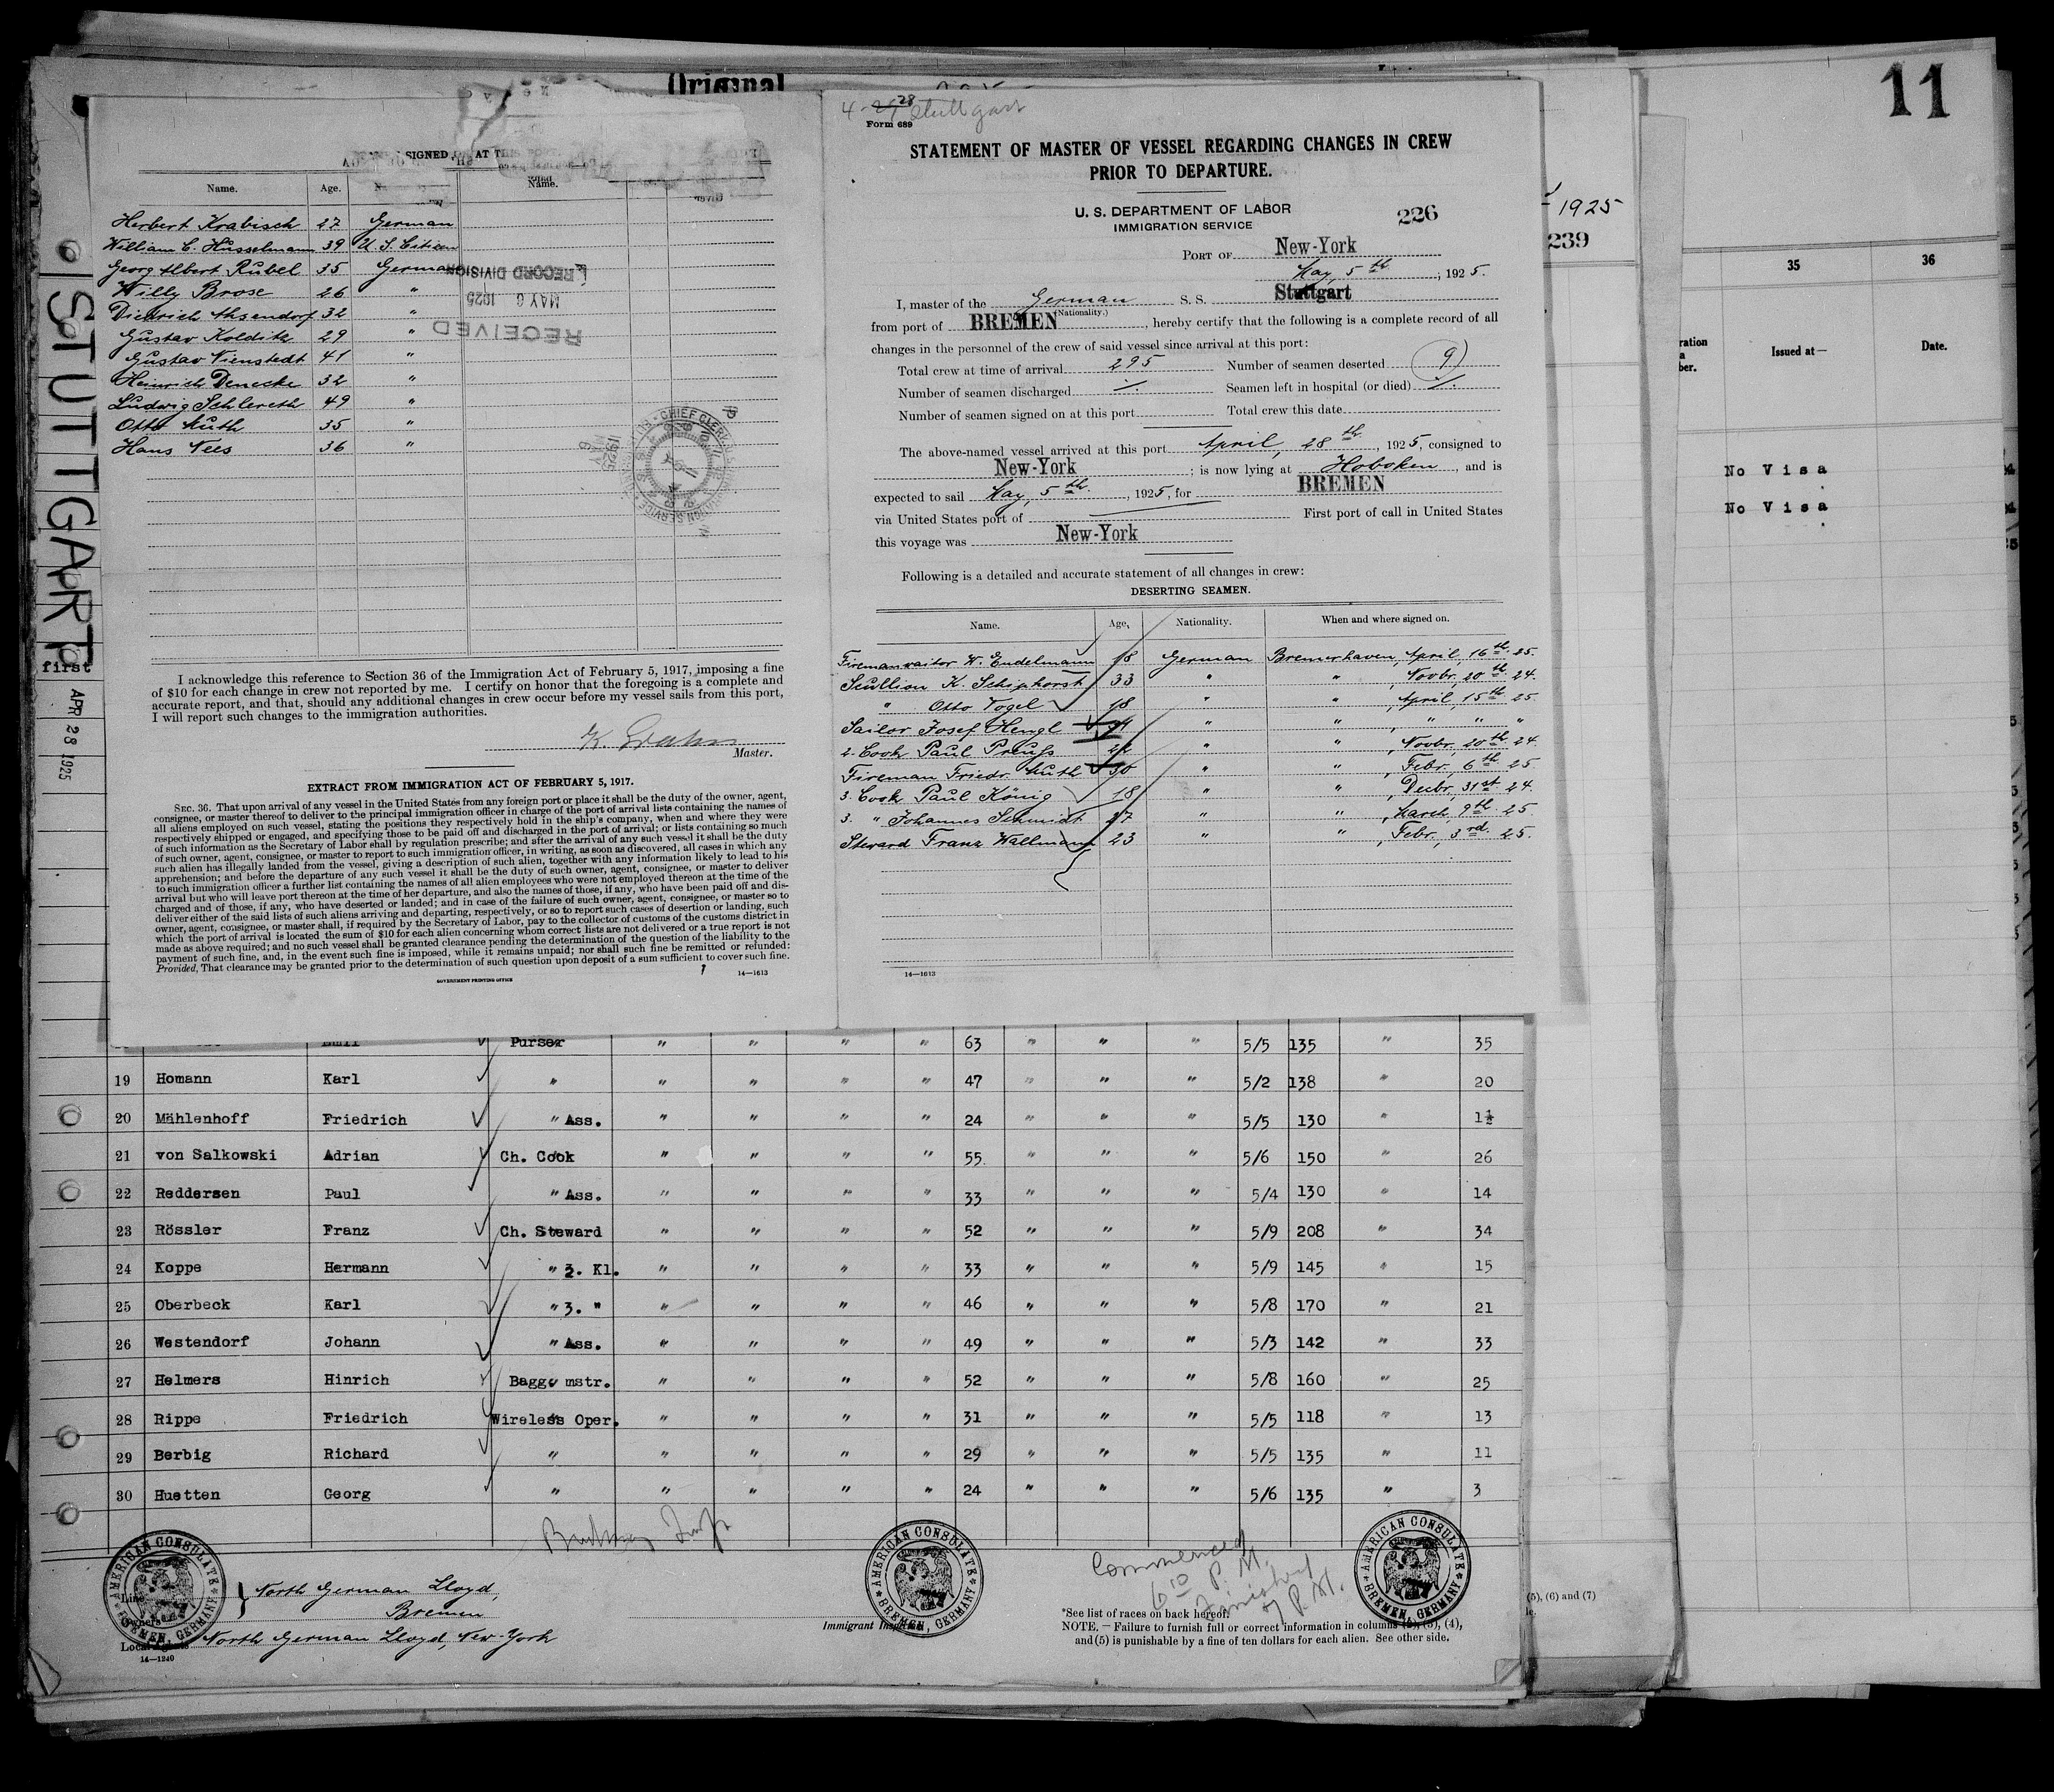 Original
11
STUTTGART
first
APR 28 1925
SIGNED AT
Name. Age. Name.
Herbert Krabisch 27 German
William C. Husselmann 39 U.S. Citizen
Georg Albert Rubel 35 German
Willy Brose 26 "
Diedrich Ahsendorf 32 "
Gustav Kolditz 29 "
Gustav Nienstedt 41 "
Heinrich Denecke 32 "
Ludwig Schlereth 49 "
Otto Muth 35 "
Hans Nees 36 "
RECEIVED
MAY 6 1925
RECORD DIVISION
CHIEF CLERK
I acknowledge this reference to Section 36 of the Immigration Act of February 5, 1917, imposing a fine
of $10 for each change in crew not reported by me. I certify on honor that the foregoing is a complete and
accurate report, and that, should any additional changes in crew occur before my vessel sails from this port,
I will report such changes to the immigration authorities.
Master.
EXTRACT FROM IMMIGRATION ACT OF FEBRUARY 5, 1917.
SEC. 36. That upon arrival of any vessel in the United States from any foreign port or place it shall be the duty of the owner, agent,
consignee, or master thereof to deliver to the principal immigration officer in charge of the port of arrival lists containing the names of
all aliens employed on such vessel, stating the positions they respectively hold in the ship's company, when and where they were
respectively shipped or engaged, and specifying those to be paid off and discharged in the port of arrival; or lists containing so much
of such information as the Secretary of Labor shall by regulation prescribe; and after the arrival of any such vessel it shall be the duty
of such owner, agent, consignee, or master to report to such immigration officer, in writing, as soon as discovered, all cases in which any
such alien has illegally landed from the vessel, giving a description of such alien, together with any information likely to lead to his
apprehension; and before the departure of any such vessel it shall be the duty of such owner, agent, consignee, or master to deliver
to such immigration officer a further list containing the names of all alien employees who were not employed thereon at the time of the
arrival but who will leave port thereon at the time of her departure, and also the names of those, if any, who have been paid off and dis-
charged and of those, if any, who have deserted or landed; and in case of the failure of such owner, agent, consignee, or master so to
deliver either of the said lists of such aliens arriving and departing, respectively, or so to report such cases of desertion or landing, such
owner, agent, consignee, or master shall, if required by the Secretary of Labor, pay to the collector of customs of the customs district in
which the port of arrival is located the sum of $10 for each alien concerning whom correct lists are not delivered or a true report is not
made as above required; and no such vessel shall be granted clearance pending the determination of the question of the liability to the
payment of such fine, and, in the event such fine is imposed, while it remains unpaid; nor shall such fine be remitted or refunded:
Provided, That clearance may be granted prior to the determination of such question upon deposit of a sum sufficient to cover such fine.
GOVERNMENT PRINTING OFFICE
14—1613
4- 28 Stuttgart
Form 689
STATEMENT OF MASTER OF VESSEL REGARDING CHANGES IN CREW
PRIOR TO DEPARTURE.
U. S. DEPARTMENT OF LABOR
IMMIGRATION SERVICE
226
PORT OF New-York
May, 5th, 1925.
I, master of the German S. S. Stuttgart
(Nationality.)
from port of BREMEN, hereby certify that the following is a complete record of all
changes in the personnel of the crew of said vessel since arrival at this port:
Total crew at time of arrival 295 Number of seamen deserted 9
Number of seamen discharged ./. Seamen left in hospital (or died) ./.
Number of seamen signed on at this port Total crew this date
The above-named vessel arrived at this port April, 28th, 1925, consigned to
New-York; is now lying at Hoboken, and is
expected to sail May, 5th, 1925, for BREMEN
via United States port of First port of call in United States
this voyage was New-York
Following is a detailed and accurate statement of all changes in crew:
DESERTING SEAMEN.
Name. Age. Nationality. When and where signed on.
W. Endelmann 18 German Bremerhaven, April, 16th 25.
Scullion K. Schiphorst 33 " " , Novbr, 20th 24.
" Otto Vogel 18 " " , April, 15th 25.
Sailor Josef Hengl " " " " "
2. Cook Paul Preuss 22 " " , Novbr, 20th 24.
Fireman Friedr. Muth 30 " " , Febr, 6th 25
3. Cook Paul König 18 " " , Decbr, 31st 24.
3. " Johannes Schmidt 27 " " , March, 9th 25.
Steward Franz Wallmann 23 " " , Febr, 3rd 25.
14—1613
1925
239
35 36
Issued at— Date.
No Visa
No Visa
Emil Purser " " " " 63 " " " 5/5 135 " 35
19 Homann Karl " " " " " 47 " " " 5/2 138 " 20
20 Mählenhoff Friedrich " Ass. " " " " 24 " " " 5/5 130 " 1½
21 von Salkowski Adrian Ch. Cook " " " " 55 " " " 5/6 150 " 26
22 Reddersen Paul " Ass. " " " " 33 " " " 5/4 130 " 14
23 Rössler Franz Ch. Steward " " " " 52 " " " 5/9 208 " 34
24 Koppe Hermann " 2. Kl. " " " " 33 " " " 5/9 145 " 15
25 Oberbeck Karl " 3. " " " " " 46 " " " 5/8 170 " 21
26 Westendorf Johann " Ass. " " " " 49 " " " 5/3 142 " 33
27 Helmers Hinrich Bagg. mstr. " " " " 52 " " " 5/8 160 " 25
28 Rippe Friedrich Wireless Oper. " " " " 31 " " " 5/5 118 " 13
29 Berbig Richard " " " " " 29 " " " 5/5 135 " 11
30 Huetten Georg " " " " " 24 " " " 5/6 135 " 3
AMERICAN CONSULATE BREMEN, GERMANY
AMERICAN CONSULATE BREMEN, GERMANY
AMERICAN CONSULATE BREMEN, GERMANY
Line
Owners
North German Lloyd,
Bremen
Local Agents North German Lloyd, New-York
14—1240
Immigrant Inspector.
Commenced
6 10 P. M.
Finished
7 P. M.
*See list of races on back hereof.
NOTE.—Failure to furnish full or correct information in columns (2), (3), (4),
and (5) is punishable by a fine of ten dollars for each alien. See other side.
(5), (6) and (7)